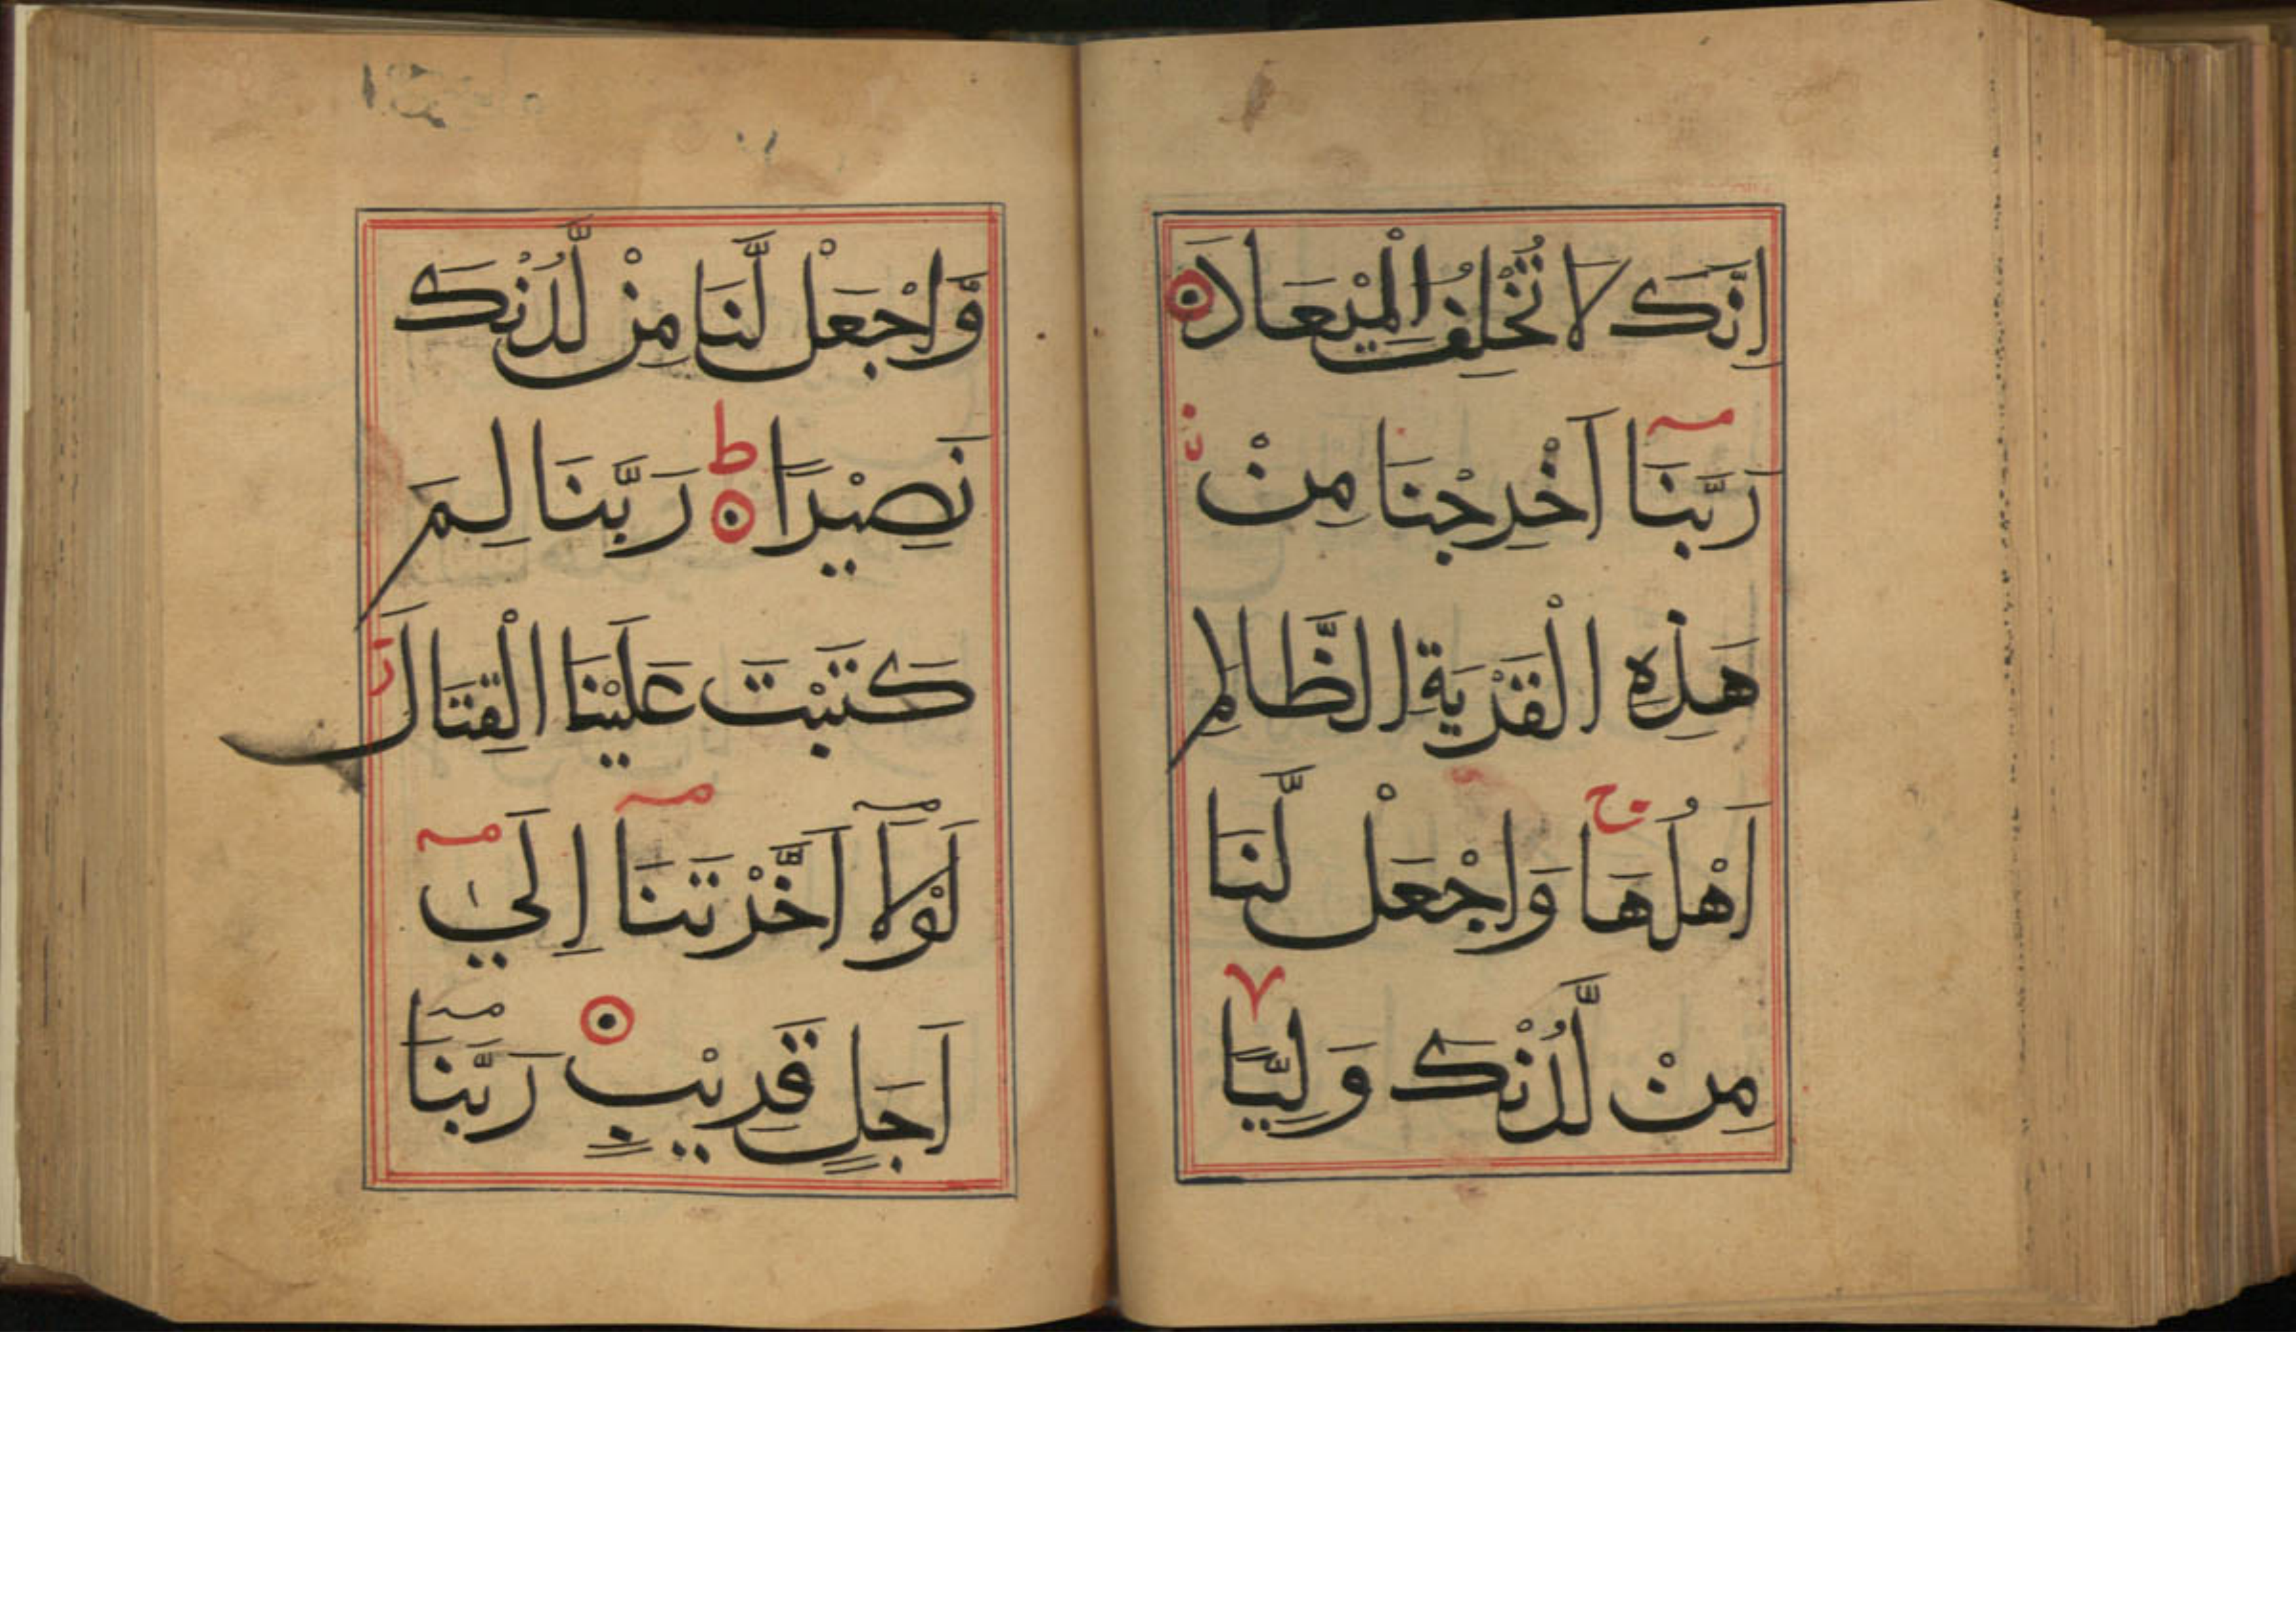 اِنَّكَ لَا تُخْلِفُ الْمِيْعَادَ
رَبَّنَا اَخْرِجْنَا مِنْ
هَذِهِ الْقَرْيَةِ الظَّالِمِ
اَهْلُهَا وَاجْعَلْ لَّنَا
مِنْ لَّدُنْكَ وَلِيًّا
وَّاجْعَلْ لَّنَا مِنْ لَّدُنْكَ
نَصِيْرًا ط رَبَّنَا لِمَ
كَتَبْتَ عَلَيْنَا الْقِتَالَ
لَوْلَآ اَخَّرْتَنَآ اِلَي
اَجَلٍ قَرِيْبٍ رَبَّنَآ